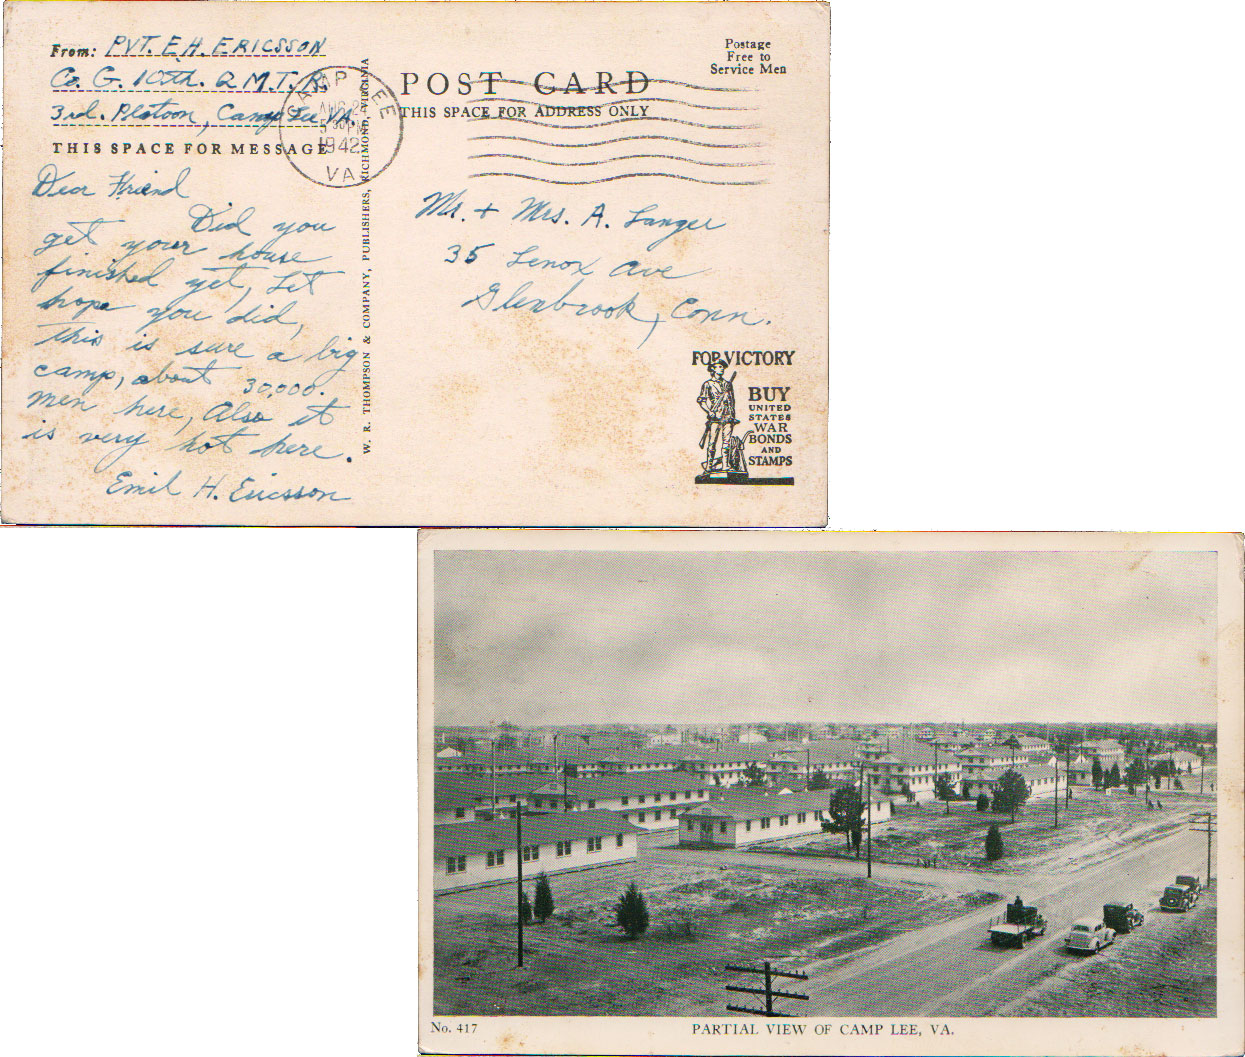 From: PVT. E.H. ERICSSON
Co. G. 10th. Q M.T.R.
3rd. Platoon, Camp Lee, VA.
THIS SPACE FOR MESSAGE
Dear Friend
Did you
get your house
finished yet, Let
hope you did,
this is sure a big
camp, about 30,000.
men here, Also it
is very hot here.
Emil H. Ericsson
W. R. THOMPSON & COMPANY, PUBLISHERS, RICHMOND, VIRGINIA
CAMP LEE
AUG 2
5 30 PM
1942
VA
POST CARD
THIS SPACE FOR ADDRESS ONLY
Postage
Free to
Service Men
Mr. + Mrs. A. Langer
35 Lenox Ave
Glenbrook, Conn.
FOR VICTORY
BUY
UNITED
STATES
WAR
BONDS
AND
STAMPS
No. 417
PARTIAL VIEW OF CAMP LEE, VA.